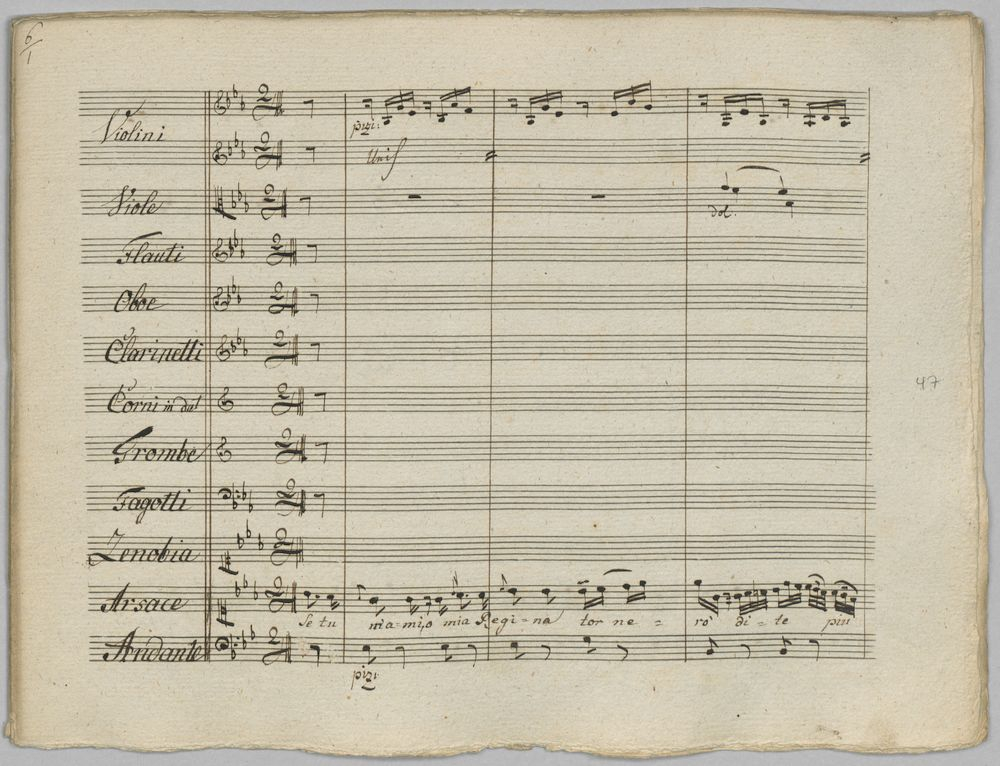 6
1
Violini
pizi:
Unis
Viole
dol.
Flauti
Oboe
Clarinetti
47
Corni in
Trombe
Fagotti
Zenobia
Arsace
Se tu m'a=mi,o mia Regi=na tor ne = rò di=te piu
Andante
pizi: